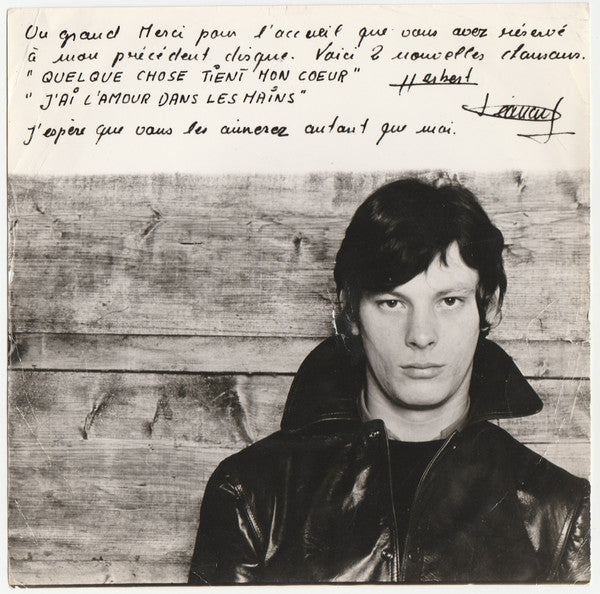 Un grand Merci pour l'accueil que vous avez réservé
à mon précédent disque. Voici 2 nouvelles chansons.
"QUELQUE CHOSE TIENT MON COEUR" Herbert
"J'AI L'AMOUR DANS LES MAINS" Léonard
J'espère que vous les aimerez autant que moi.